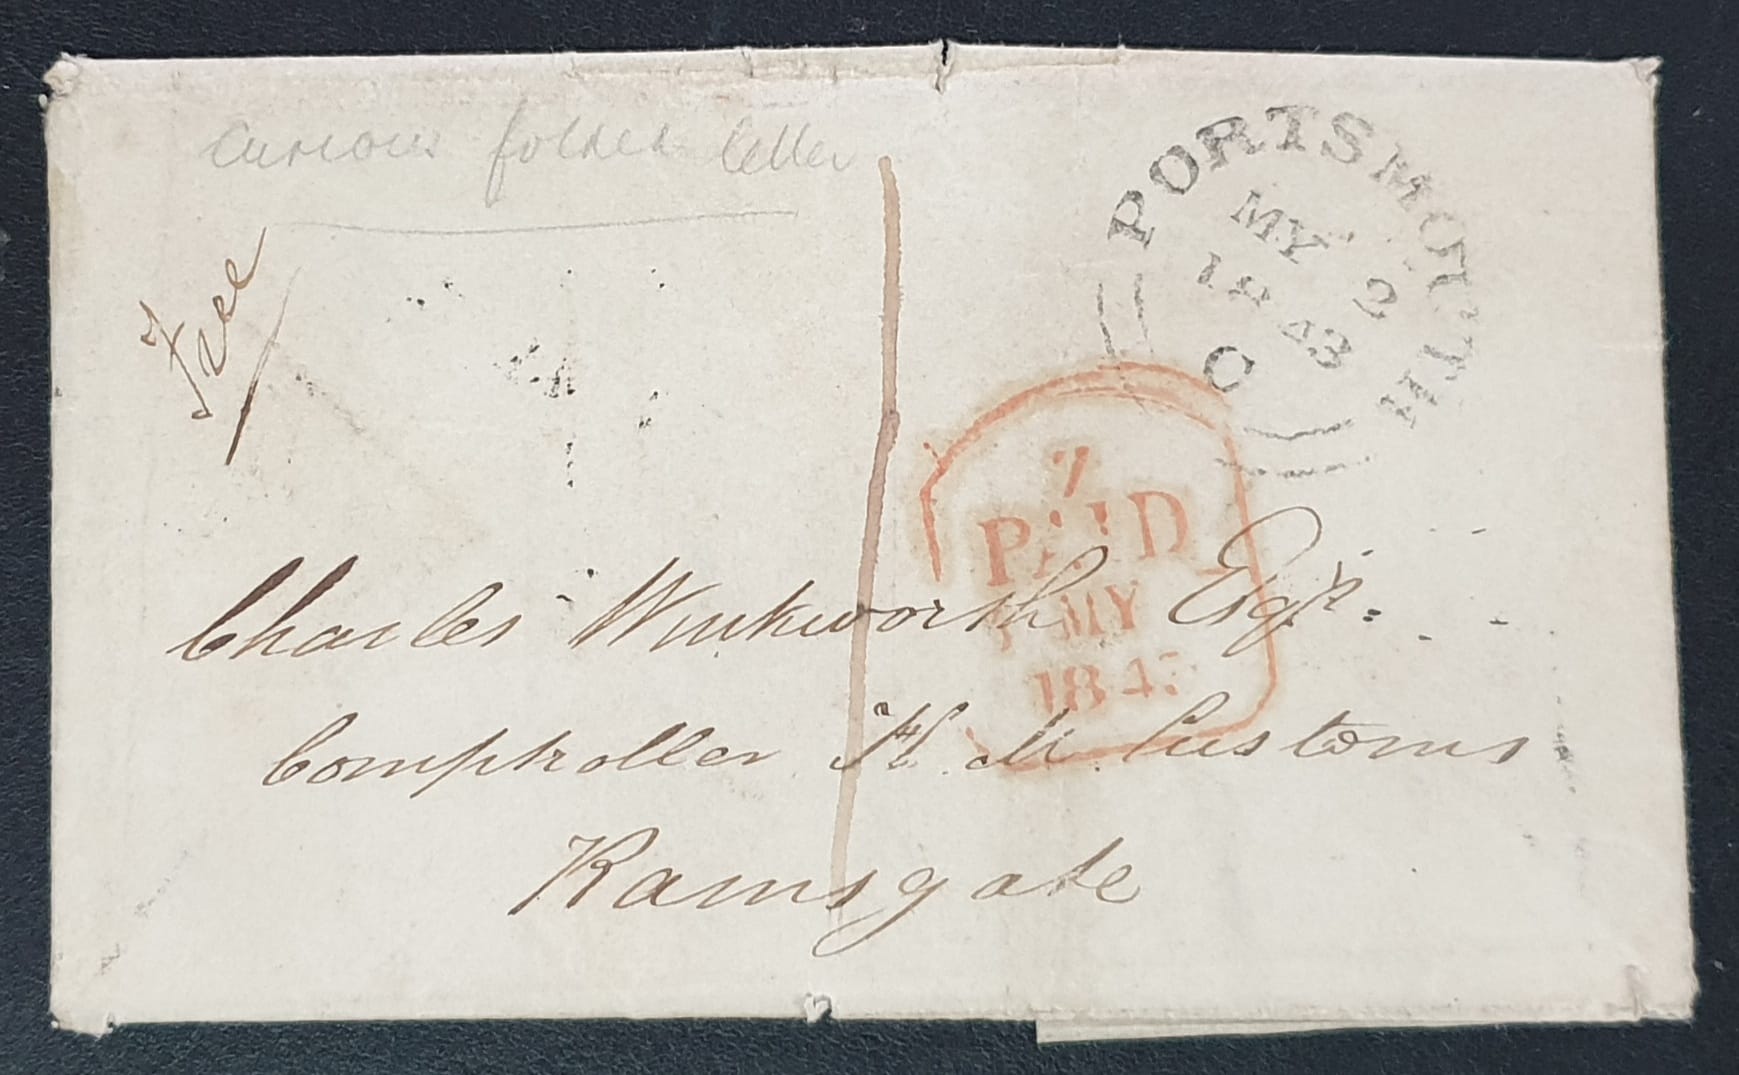 curious folded letter
Free
PORTSMOUTH
MY 2
1843
C
PAID
MY
184
Charles Winkworth Esqr.
Comptroller H. M. Customs
Ramsgate